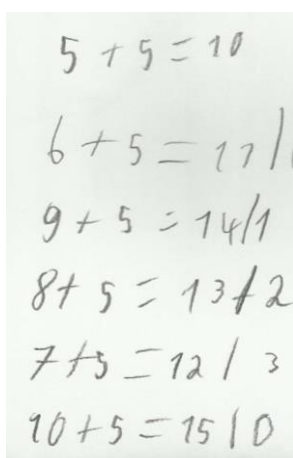 5 + 5 = 10
6 + 5 = 11 /
9 + 5 = 14/1
8 + 5 = 13/2
7 + 5 = 12 / 3
10 + 5 = 15 / 0